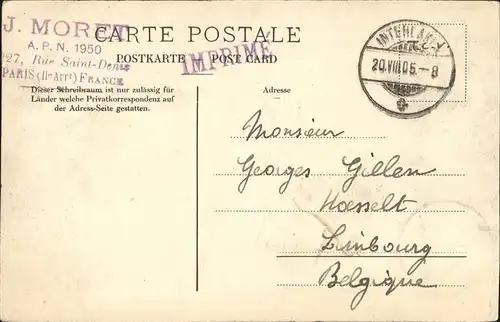 J. MORET
A. P. N. 1950
27, Rue Saint-Denis
PARIS (IIe Arrt) FRANCE
CARTE POSTALE
POSTKARTE POST CARD
IMPRIMÉ
Dieser Schreibraum ist nur zulässig für
Länder welche Privatkorrespondenz auf
der Adress-Seite gestatten.
Adresse
INTERLAKEN
20.VIII.05.–8
Monsieur
Georges Gillen
Hasselt
Limbourg
Belgique